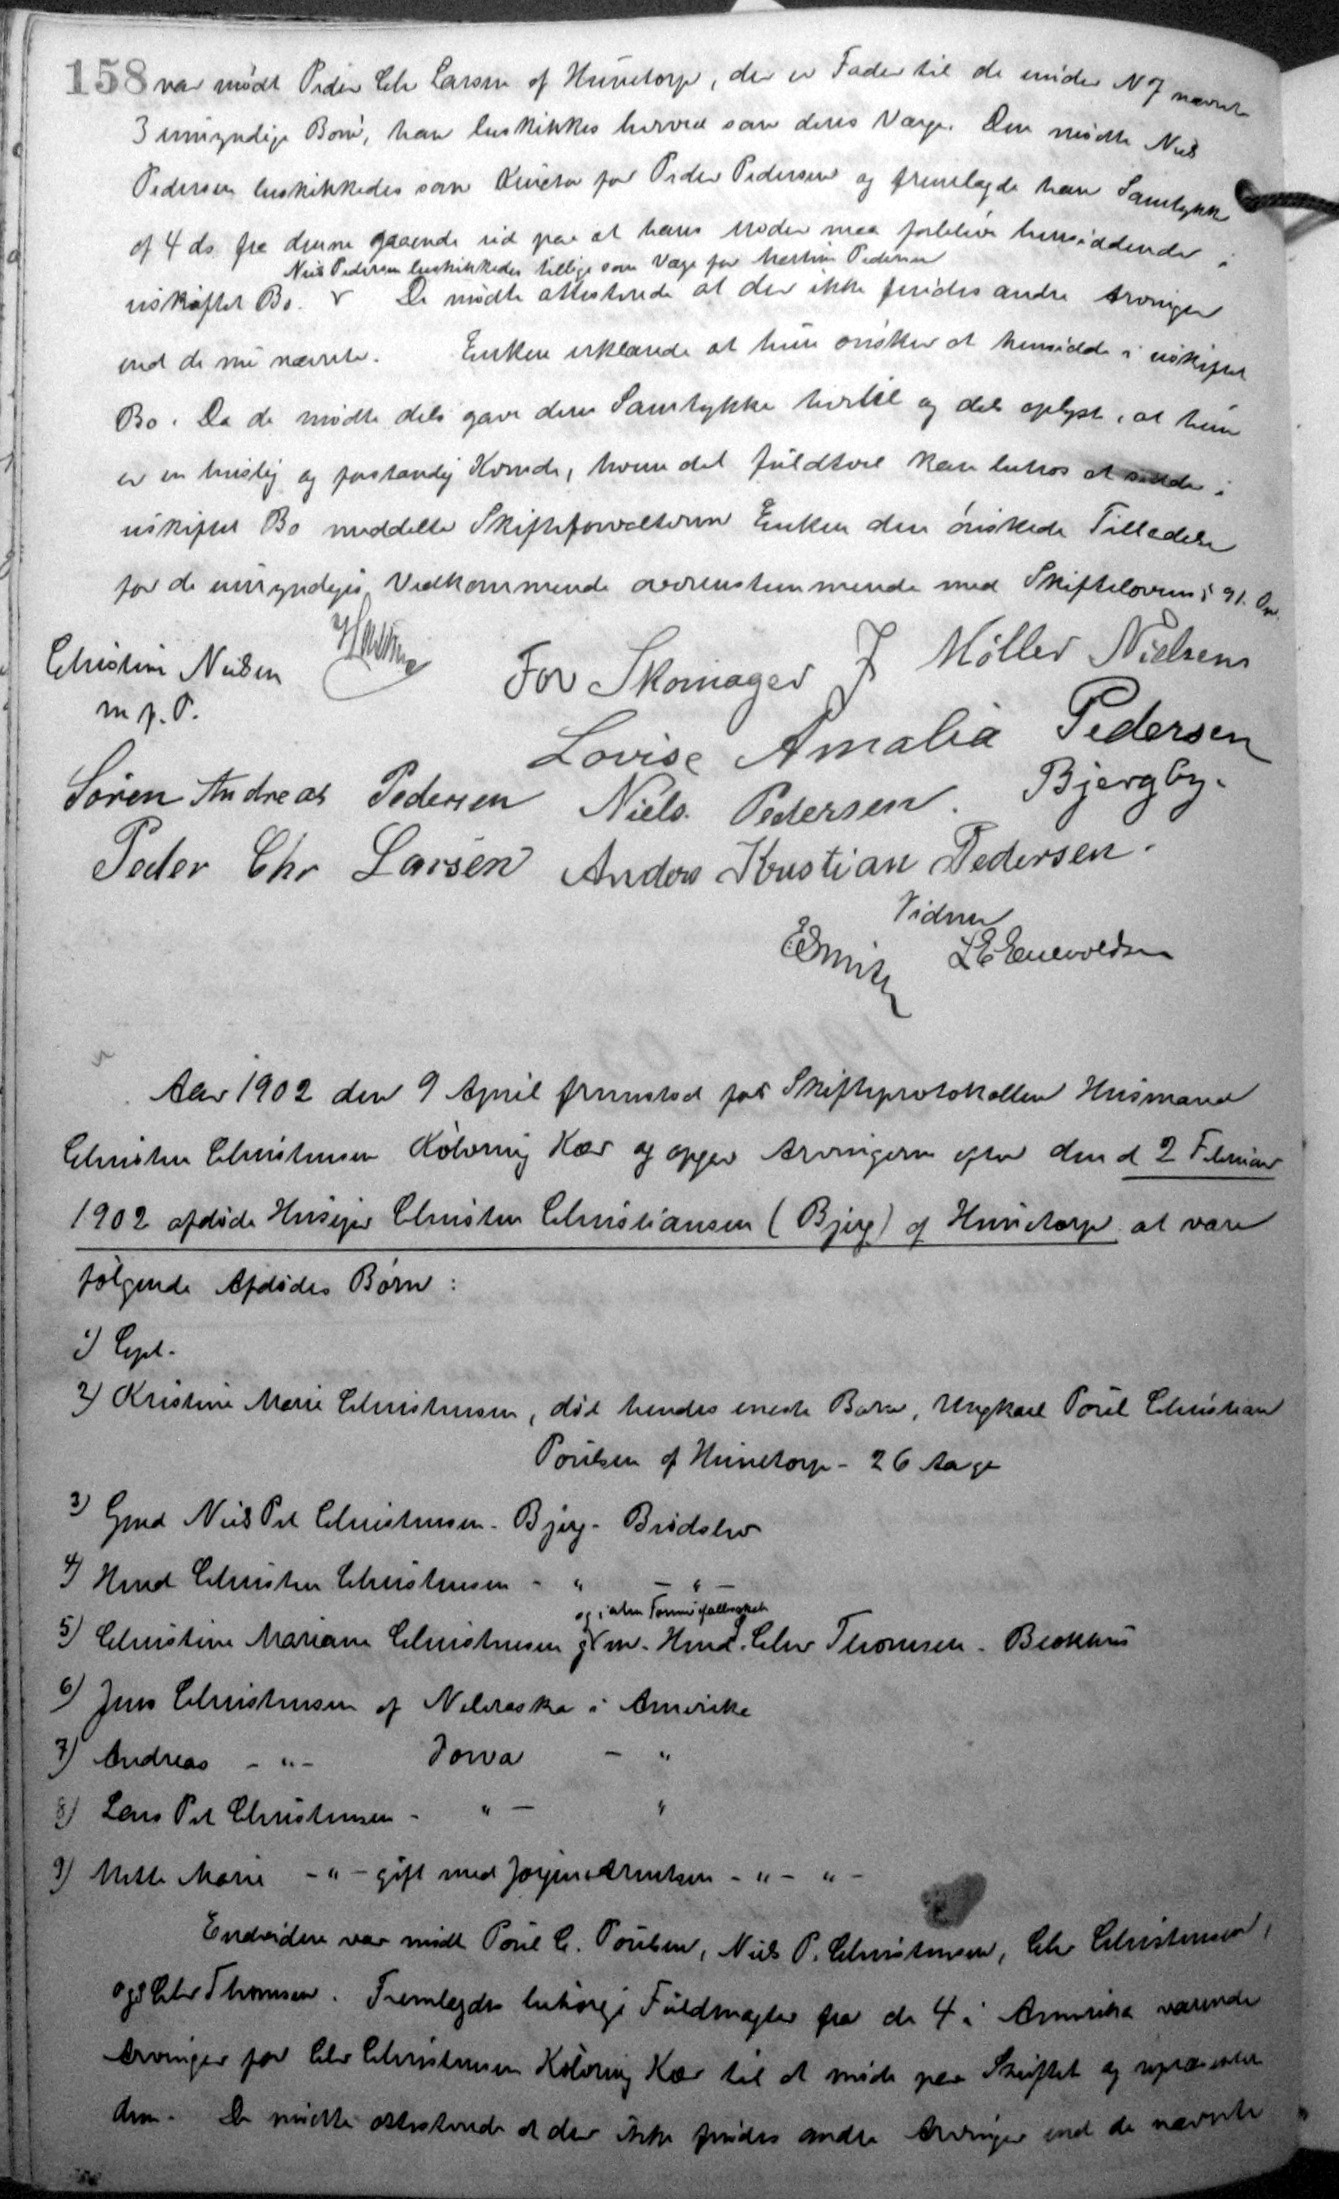 158 var mødt Peder Chr Larsen af Hunetorp, der er Fader til de under N 7 nævnte
3 umyndige Børn, han beskikkes herved som deres Værge. Den mødte Niels
Pedersen beskikkedes som Kurator for Peder Pedersen og fremlagde han Samtykke
af 4 ds fra denne gaaende ud paa at hans Moder maa forblive hensiddende i
Niels Pedersen beskikkedes tillige som Værge for Martin Pedersen
uskiftet Bo. V De mødte attesterede at der ikke findes andre Arvinger
end de nu nævnte. Enken erklærede at hun ønsker at hensidde i uskiftet
Bo. Da de mødte dels gave deres Samtykke hertil og dels oplyste, at hun
er en huslig og forstandig Kvinde, hvem det fuldtvel kan betros at sidde i
uskiftet Bo meddelte Skifteforvalteren Enken den ønskede Tilladelse
for de umyndiges Vedkommende overensstemmende med Skiftelovens § 91.
Christine Nielsen
m. f. P.
For Skomager J Møller Nielsen
Lovise Amalia Pedersen
Søren Andreas Pedersen Niels Pedersen. Bjergby.
Peder Chr Larsen Anders Kristian Pedersen.
Vidner
ESmith LEEnevoldsen
Aar 1902 den 9 April fremstod for Skifteprotokollen Husmand
Christen Christensen Kølvring Kær og opgav Arvingerne efter den d 2 Februar
1902 afdøde Husejer Christen Christiansen (Bjerg) af Hunetorp at være
følgende Afdødes Børn:
1) Cpt.
2) Kristine Marie Christensen, død hendes eneste Barn, Ungkarl Poul Christian
Poulsen af Hunetorp - 26 Aar gl
3) Gmd Niels Pet Christensen - Bjerg - Brødslev
4) Hmd Christen Christensen - " - " -
og i alm Formuefællesskab
5) Christine Mariane Christensen g V m. Hmd. Chr Thomsen - Blokhus
6) Jens Christensen af Nebraska i Amerika
7) Andreas - " - Iowa - "
8) Lars Pet Christensen - " - "
9) Mette Marie - " - gift med Jørgen Arentsen - " - " -
Endvidere var mødt Poul C. Poulsen, Niels P. Christensen, Chr Christensen,
og Chr Thomsen. Fremlagdes behørige Fuldmagter fra de 4 i Amerika værende
Arvinger for Chr Christensen Kølvring Kær til at møde paa Skiftet og repræsentere
dem. De mødte attesterede at der ikke findes andre Arvinger end de nævnte